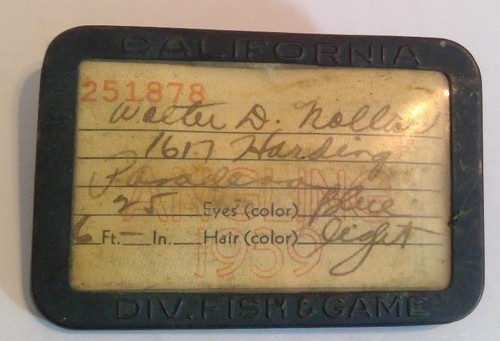 CALIFORNIA
251878
Walter D.
1617 Harding
Pasadena
ANGLING
25 Eyes (color) Blue
6 Ft. - In. Hair (color) light
1939
DIV. FISH & GAME